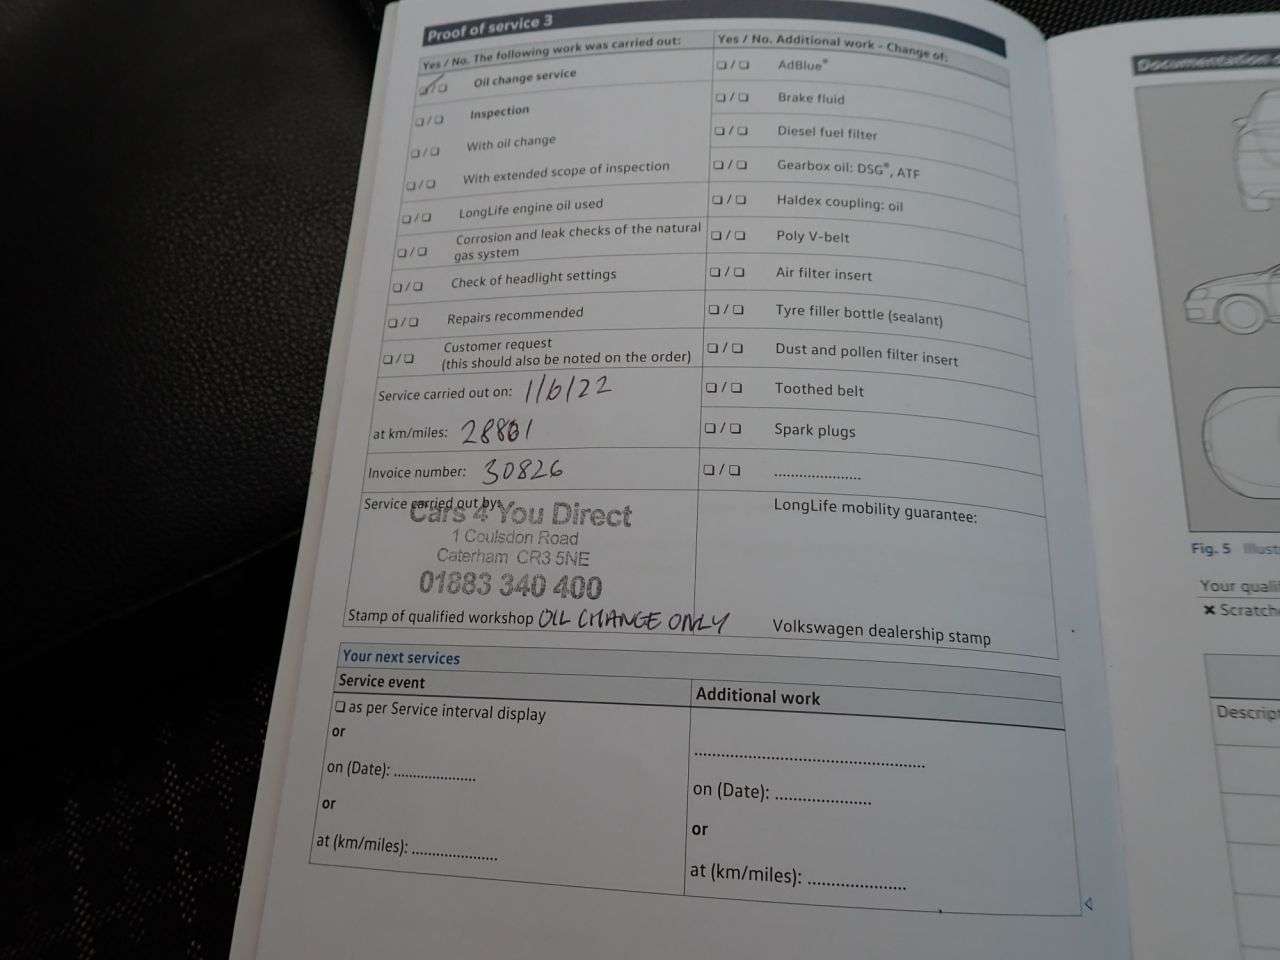 Proof of service 3
Yes / No. The following work was carried out:
❏ / ❏ Oil change service
❏ / ❏ Inspection
❏ / ❏ With oil change
❏ / ❏ With extended scope of inspection
❏ / ❏ LongLife engine oil used
❏ / ❏ Corrosion and leak checks of the natural
gas system
❏ / ❏ Check of headlight settings
❏ / ❏ Repairs recommended
❏ / ❏ Customer request
(this should also be noted on the order)
Service carried out on: 1/6/22
at km/miles: 28801
Invoice number: 30826
Service carried out by:
Cars 4 You Direct
1 Coulsdon Road
Caterham CR3 5NE
01883 340 400
Stamp of qualified workshop OIL CHANGE ONLY
Yes / No. Additional work - Change of:
❏ / ❏ AdBlue®
❏ / ❏ Brake fluid
❏ / ❏ Diesel fuel filter
❏ / ❏ Gearbox oil: DSG®, ATF
❏ / ❏ Haldex coupling: oil
❏ / ❏ Poly V-belt
❏ / ❏ Air filter insert
❏ / ❏ Tyre filler bottle (sealant)
❏ / ❏ Dust and pollen filter insert
❏ / ❏ Toothed belt
❏ / ❏ Spark plugs
❏ / ❏ .....................
LongLife mobility guarantee:
Volkswagen dealership stamp
Your next services
Service event
❏ as per Service interval display
or
on (Date): .....................
or
at (km/miles): .....................
Additional work
..........................................................
on (Date): ........................
or
at (km/miles): ........................
Documentation
Fig. 5 Illust
Your quali
✖ Scratch
Descript